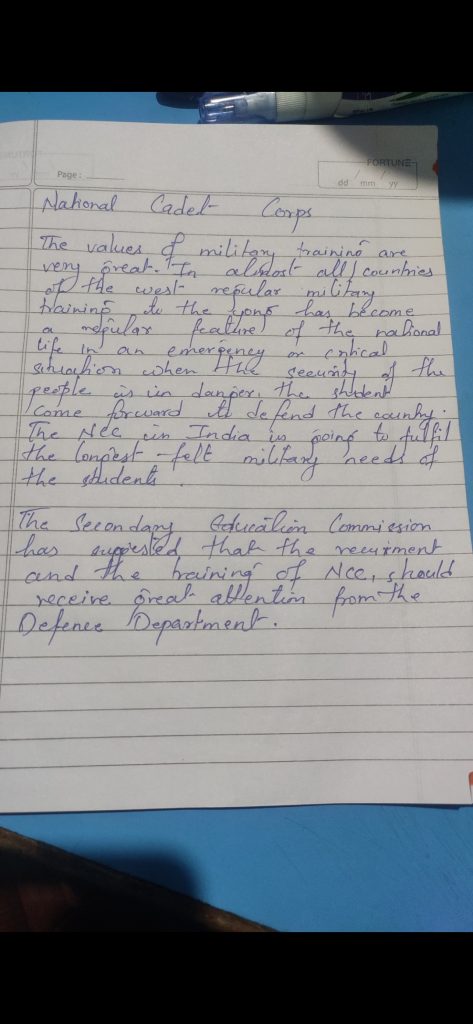 FORTUNE
Page:
dd mm yy
National Cadet Corps
The values of military training are
very great. In almost all countries
of the west regular military
training to the yong has become
a regular feature of the national
life in an emergency or critical
situation when the security of the
people is in danger, the student
come forward to defend the country.
The Ncc in India is going to fulfil
the longest-felt military needs of
the students.
The Secondary Education Commission
has suggested that the recuirment
and the training of NCC, should
receive great attention from the
Defence Department.